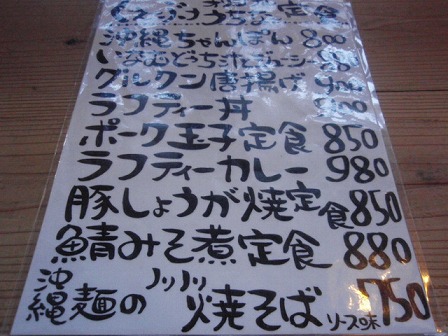 定食
沖縄ちゃんぽん 800
いなむどぅち汁
グルクン唐揚げ 900
ラフティー丼 900
ポーク玉子定食 850
ラフティーカレー 980
豚しょうが焼定食 850
鯖みそ煮定食 880
沖縄麺のソソソ焼そば ソース味 750